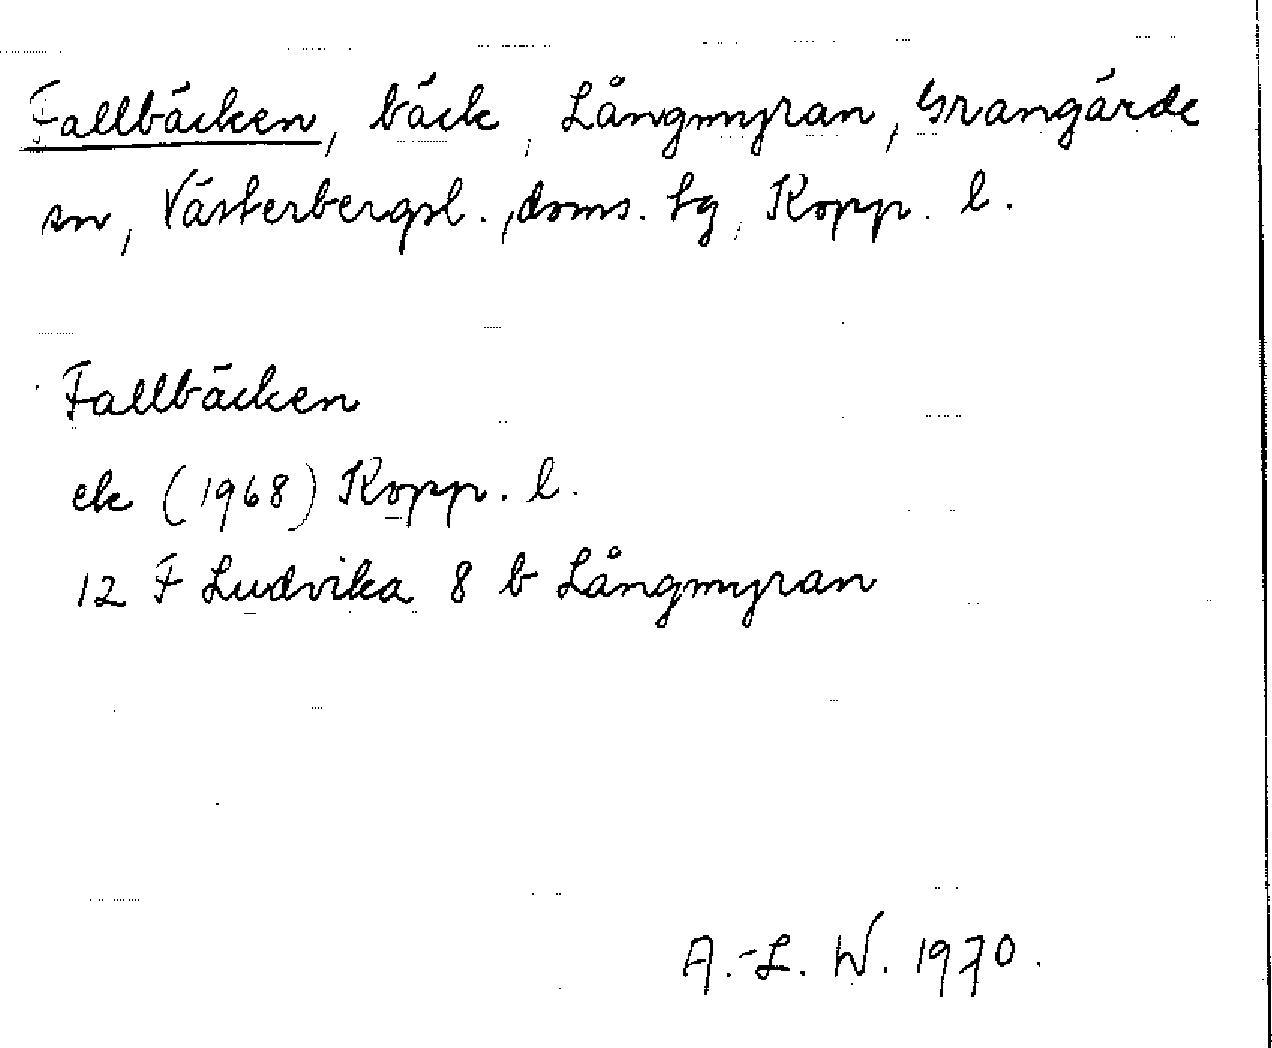 Fallbäcken, bäck, Långmyran, Grangärde
sn, Västerbergsl., doms. tg, Kopp. l.
Fallbäcken
ek (1968) Kopp. l.
12 F Ludvika 8 b Långmyran
A.-L. W. 1970.